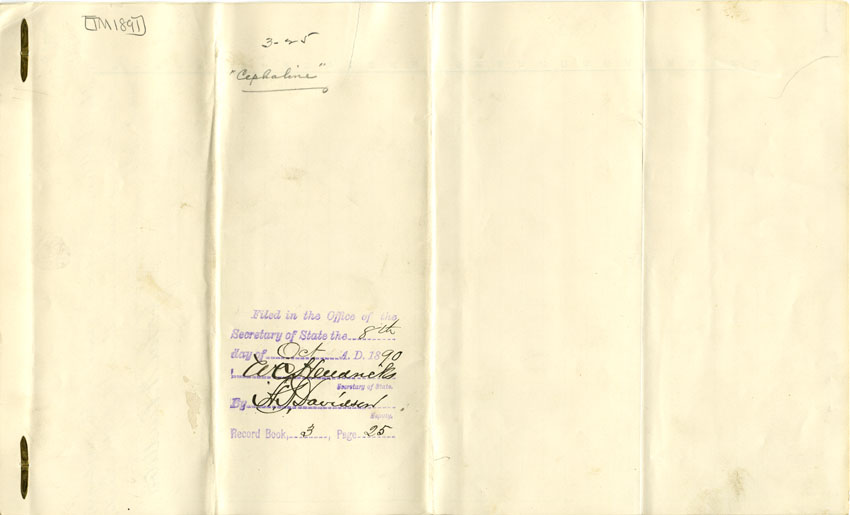 TM1891
3-25
"Cephaline"
Filed in the Office of the
Secretary of State the 8th
day of Oct A. D. 1890
W C Hendricks
Secretary of State.
By Davidson
Deputy.
Record Book, 3, Page 25